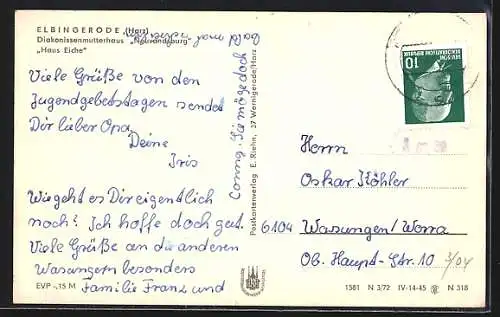 ELBINGERODE (Harz)
Diakonissenmutterhaus "Neuvandsburg"
„Haus Eiche"
Viele Grüße von den
Jugendgebetstagen sendet
Dir lieber Opa
Deine
Iris
Wie geht es Dir eigentlich
noch? Ich hoffe doch gut.
Viele Grüße an die anderen
Wasungern besonders
Familie Franz und
Conny. Sie möge doch
bald mal schreiben
EVP -,15 M
Postkartenverlag E. Riehn, 37 Wernigerode/Harz
10
DEUTSCHE
DEMOKRATISCHE REPUBLIK
Herrn
Oskar Köhler
6104 Wasungen/Werra
Ob. Haupt-Str. 10
1381 N 3/72 IV-14-45 N 318